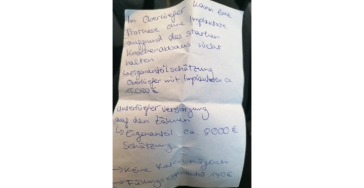 Im Oberkiefer kann eine
Prothese ohne Implantate
aufgrund des starken
Knochenabbaus nicht
halten
Eigenanteil Schätzung
Oberkiefer mit Implantaten ca
Unterkiefer Versorgung
auf den Zähnen
↳ Eigenanteil ca 8000 €
Schätzung
→ Keine
→